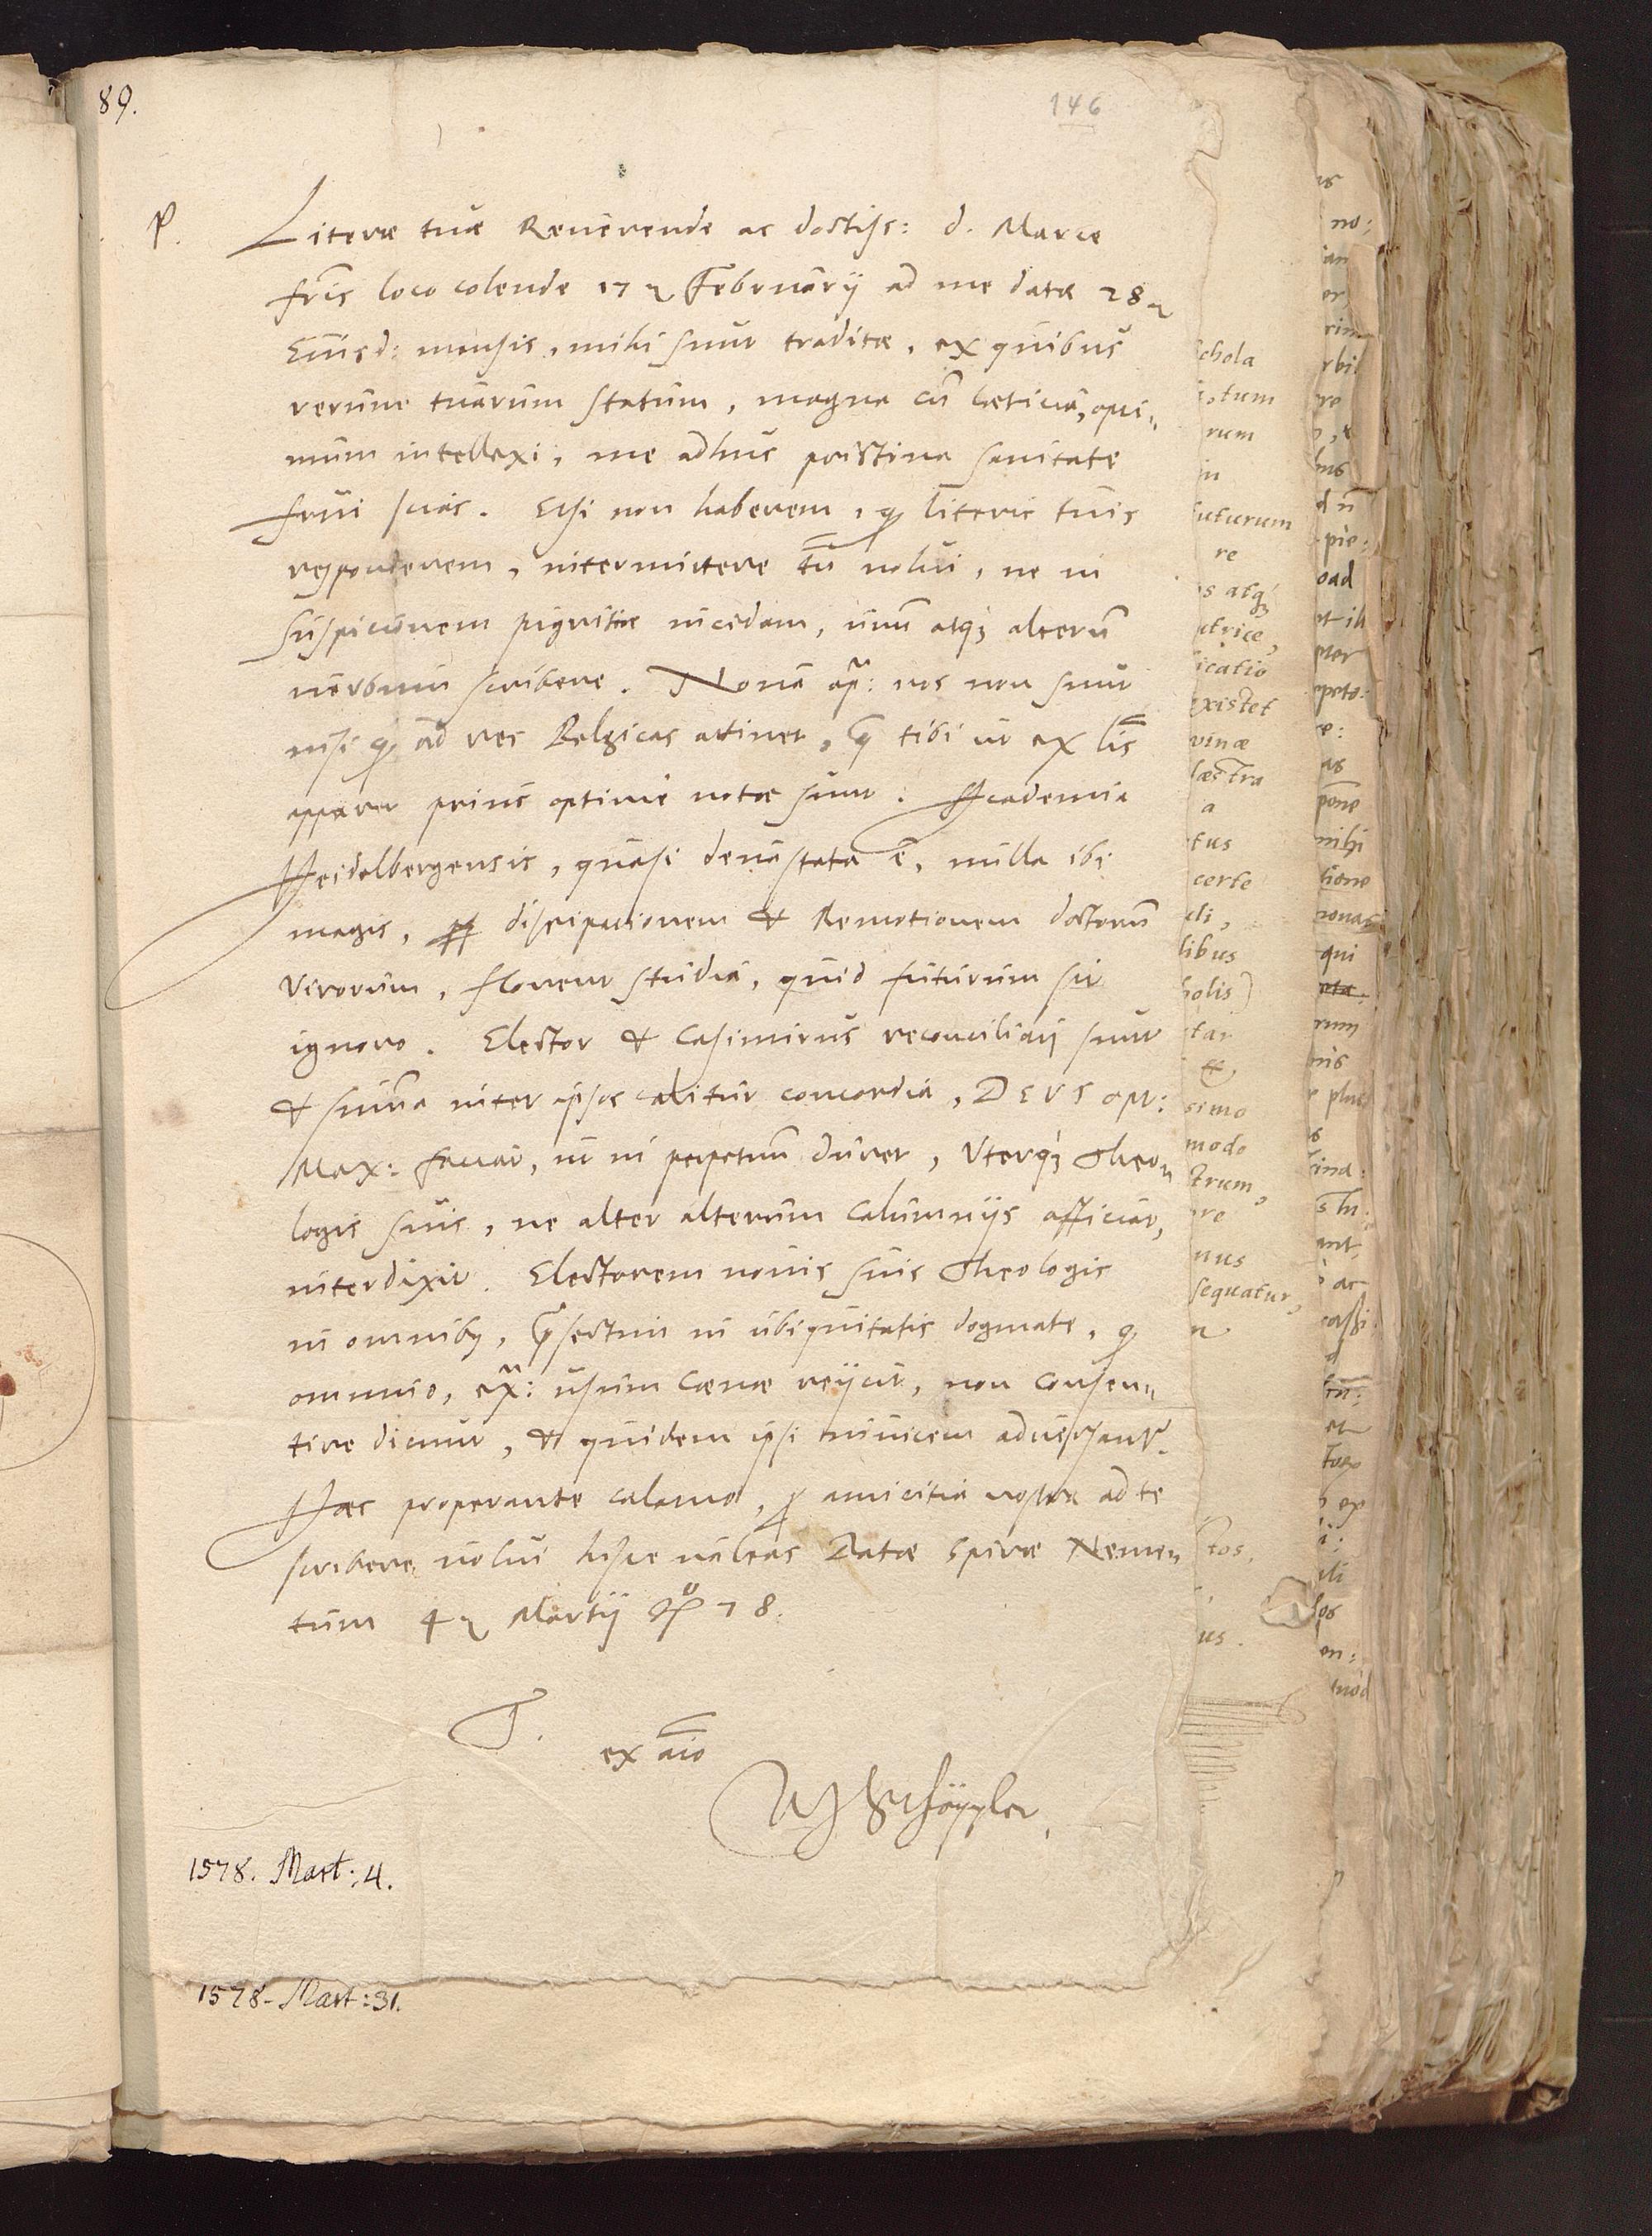 89.
146
P.
Literæ tuæ Reuerende ac doctiss: d. Marce
fr̃is loco colende 17 Februarij ad me datæ 28
Eiusd: mensis, mihi sunt traditæ, ex quibus
rerum tuarum statum, magna cũ lætitia, opti„
mum intellexi, me adhuc pristina sanitate
frui scias. Etsi non haberem, q̃ literis tuis
responderem, intermittere tñ nolui, ne in
suspicionem pigritiæ incidam, unũ atq; alterũ
uerbum scribere. Noua ap: nos non sunt
nisi q̃ ad res Belgicas attinet, q̃ tibi ut ex lr̃is
apparet prius optime notæ sunt. Academia
Heidelbergensis, quasi deuastata ẽ, nulla ibi
magis, ꝓp dissipationem & Remotionem doctorũ
Virorum, florent studia, quid futurum sit
ignoro. Elector & Casimirus reconciliatj sunt
& sum̃a inter ipsos colitur concordia, DEVS opt:
Max: faciat, ut in perpetuũ duret, Vterq; Theo„
logis suis, ne alter alterum calumnijs afficiat,
interdixit. Electorem nouis suis Theologis
in omnibꝰ, p̃sertim in ubiquitatis dogmate, q̃
omnino, ex: usum Cœnæ reijcit, non consen„
tire dicunt, & quidem ipsi inuicem aduersant̃.
Hæc properante calamo, ꝓ amicitia nostra ad te
scribere uolui hisce ualeas Datæ Spiræ Neme„
tum 4 Martij Aº 78.
T.
ex aĩo
Schöppler
1578. Mart: 4.
1578. Mart: 31.
chola
tum
rum
in
futurum
re
s atq;
utrice,
icatio
existet
uinæ
læstra
a
tus
certe
li,
libus
holis)
tar
&
simo
modo
trum,
re
nus
sequatur,
n
tos,
us.